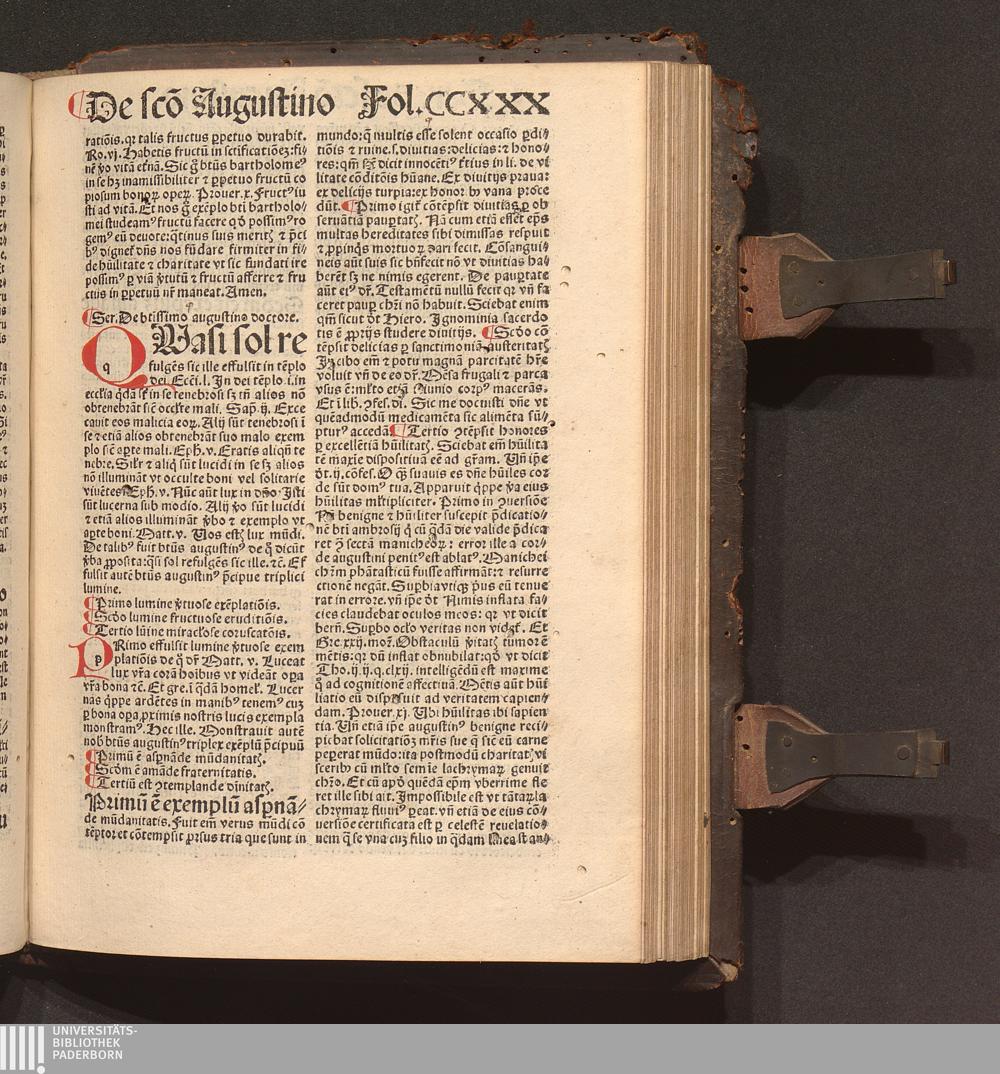 De scō Augustino Fol. CCXXX
ratiōis. qr talis fructus ꝑpetuo durabit.
Ro. vj. Habetis fructū in scificatiōeꝫ: fi-
nē ꝟo vitā etnā. Sic ḡ btūs bartholomeꝰ
in se hꝫ inamissibiliter ⁊ ꝑpetuo fructū co
piosum bonoꝝ opeꝝ. Prouer. x. Fructꝰ iu
sti ad vitā. Et nos ḡ exēplo bti bartholo-
mei studeamꝰ fructū facere qd possimꝰ ro
gemꝰ eū deuote: qtinus suis meritꝭ ⁊ p̄ci
bꝰ dignet dn̄s nos fūdare firmiter in fi-
de hūilitate ⁊ charitate vt sic fundati ire
possimꝰ ꝑ viā ꝟtutū ⁊ fructū afferre ⁊ fru
ctus in ꝑpetuū nr̄ maneat. Amen.
Ser. De btissimo augustino doctore.
Quasi sol re
fulgēs sic ille effulsit in tēplo
dei. Eccī. l. In dei tēplo .i. in
eccl'ia q̄dā sūt in se tenebrosi sꝫ tn̄ alios nō
obtenebrāt sic̄ occl'te mali. Sap. ij. Exce
cauit eos malicia eoꝝ. Alij sūt tenebrosi ī
se ⁊ etiā alios obtenebrāt suo malo exem
plo sic̄ apte mali. Eph. v. Eratis aliqn̄ te
nebre. Sil'r ⁊ aliq̄ sūt lucidi in se sꝫ alios
nō illuminā̄t vt occulte boni vel solitarie
viuētes. Eph. v. Nūc aūt lux in dn̄o. Isti
sūt lucerna sub modio. Alij ꝟo sūt lucidi
⁊ etiā alios illuminā̄t ꝟbo ⁊ exemplo vt
apte boni. Matt. v. Vos estꝭ lux mūdi.
De talibꝰ fuit btūs augustinꝰ de q̄ dicūt
ꝟba ꝓposita: qsi sol refulgēs sic ille. ⁊c. Ef
fulsit autē btūs augustinꝰ p̄cipue triplici
lumine.
Primo lumine ꝟtuose exēplatiōis.
Scdo lumine fructuose eruditiōis.
Tertio lūine miracl'ose coruscatōis.
PRimo effulsit lumine ꝟtuose exem
platiōis de q̄ dr̄ Matt. v. Luceat
lux vr̄a corā hoībus vt videāt oꝑa
vr̄a bona ⁊c̄. Et gre. ī q̄dā homel'. Lucer
nas q̄ppe ardētes in manibꝰ tenemꝰ cuꝫ
ꝑ bona oꝑa ꝓximis nostris lucis exempla
monstramꝰ. Hec ille. Monstrauit autē
nob̄ btūs augustinꝰ triplex exēplū p̄cipuū
Primū ē aspnāde mūdanitatꝭ.
Scdm ē amāde fraternitatis.
Tertiū est ꝯtemplande diuinitatꝭ.
Primū ē exemplū aspnā-
de mūdanitatis. Fuit em̄ verus mūdi cō
tēptor et cōtempsit ꝓrsus tria que sunt in
mundo: q̄ multis esse solent occasio ꝑdi-
tiōis ⁊ ruine. s. diuitias: delicias: ⁊ hono-
res: qm̄ sꝫ dicit innocētiꝰ t'tius in li. de vi
litate cōditōis hūane. Ex diuitijs praua:
ex delicijs turpia: ex honorībꝰ vana proce
dūt. Primo igit' cōtēpsit diuitias ꝑ ob
seruātiā pauptatꝭ. Nā cum etiā esset ep̄s
multas hereditates sibi dimissas respuit
⁊ ꝓpinqꝭ mortuoꝝ dari fecit. Cōsangui-
neis aūt suis sic bn̄fecit nō vt diuitias ha-
berēt sꝫ ne nimis egerent. De pauptate
aūt eiꝰ dr̄. Testamētū nullū fecit qr vn̄ fa
ceret pauꝑ chr̄i nō habuit. Sciebat enim
qm̄ sicut dt Hiero. Ignominia sacerdo
tis ē ꝓprijs studere diuitijs. Scdo cō
tēpsit delicias ꝑ sanctimoniā austeritatꝭ
In cibo em̄ ⁊ potu magnā parcitatē hr̄e
voluit vn̄ de eo dr̄. Mēsa frugali ⁊ parca
vsus ē: ml'to etiā ieiunio corpꝰ macerās.
Et ī lib. ꝯfes. dī. Sic me docuisti dn̄e vt
quēadmodū medicamēta sic alimēta sū-
pturꝰ accedā. Tertio ꝯtēpsit honores
ꝑ excellētiā hūilitatꝭ. Sciebat em̄ hūilita
tē maxīe dispositiuā eē ad gr̄am. Vn̄ ip̄e
dt. ij. cōfes. O q̄ꝫ suauis es dn̄e hūiles cor
de sūt domꝰ tua. Apparuit q̄ppe ꝟa eius
hūilitas ml'tipliciter. Primo in ꝯuersiōe
Nā benigne ⁊ hūiliter suscepit p̄dicatio-
nē bti ambrosij q̄ cū q̄dā die valide p̄dica
ret ꝯ̄ sectā manicheoꝝ: error ille a cor-
de augustini penitꝰ est ablatꝰ. Manichei
chr̄m phātasticū fuisse affirmāt: ⁊ resurre
ctionē negāt. Supbia vtiqꝫ p̄us eū tenue
rat in errore. vn̄ ip̄e dt Nimis inflata fa-
cies claudebat oculos meos: qr vt dicit
bern̄. Supbo ocl'o veritas non videt'. Et
Gre. xxij. mor̄. Obstaculū ꝟitatꝭ tumor ē
mētis: qr dū inflat obnubilat: qd vt dicit
Tho. ij. ij. q. clxij. intelligēdū est maxime
q̄ ad cognitionē affectiuā. Mētis aūt hūi
liatio eū disposuit ad veritatem capien-
dam. Prouer. xj. Vbi hūilitas ibi sapien
tia. Vn̄ etiā ip̄e augustinꝰ benigne reci-
piebat solicitatiōꝫ mr̄is sue q̄ sic̄ eū carne
peꝑerat mūdo: ita postmodū charitatꝭ vi
sceribꝰ cū ml'to semīe lachrymaꝝ genuit
chr̄o. Et cū apd̄ quēdā ep̄m vberrime fle
ret ille sibi ait. Impossibile est vt tātaꝝ la
chrymaꝝ filiuꝰ ꝑeat. vn̄ etiā de eius cō-
uersiōe certificata est ꝑ celestē reuelatio-
nem q̄ se vna cuꝫ filio in q̄dam linea stan-
UNIVERSITÄTS-
BIBLIOTHEK
PADERBORN